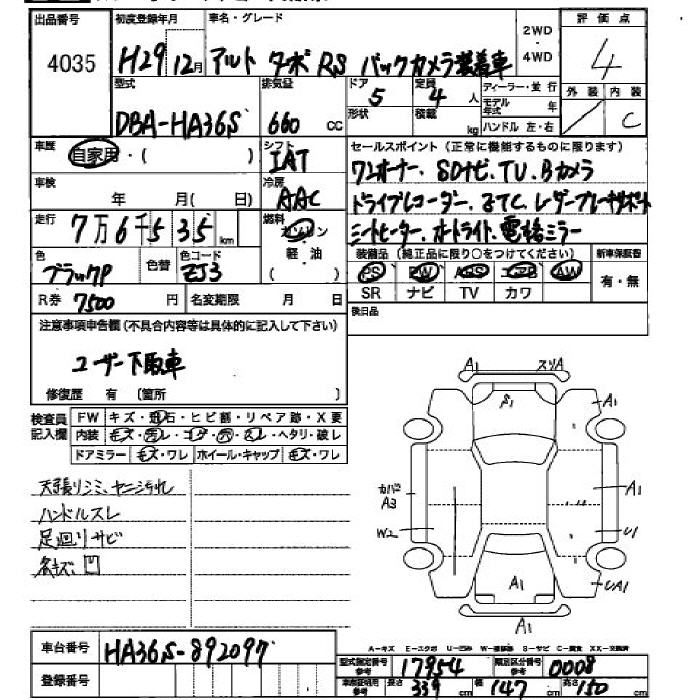 出品番号 初度登録年月 車名・グレード 2WD 評価点
4035 H29 12月 アルト ターボRS バックカメラ装着車 4WD 4
型式 排気量 ドア 定員 ディーラー・並行 外装 内装
DBA-HA36S 660 cc 5 4 人 モデル年式 年
形状 積載 kg ハンドル 左・右 C
車歴 シフト セールスポイント (正常に機能するものに限ります)
自家用・( ) IAT ワンオーナー.SDナビ.TV.Bカメラ
車検 冷房
年 月( 日) AAC ドライブレコーダー.ETC.レーダーブレーキサポート
走行 燃料
7万6千535 km ガソリン シートヒーター.オートライト.電格ミラー
色 色替 色コード 軽・油 装備品 (純正品に限り○をつけてください) 新車保証書
ブラックP ZJ3 ( ) PS PW ABS エアB AW 有・無
R券 7500 円 名変期限 月 日 SR ナビ TV カワ
後日品
注意事項申告欄 (不具合内容等は具体的に記入して下さい)
ユーザー下取車
修復歴 有 〔箇所 〕
検査員 FW キズ・飛石・ヒビ割・リペア跡・X要
記入欄 内装 キズ・汚レ・コゲ・穴・スレ・ヘタリ・破レ
ドアミラー キズ・ワレ ホイール・キャップ キズ・ワレ
天張りシミ、ヤニ汚れ
ハンドルスレ
足廻りサビ
各キズ、凹
A1 スリA
S1 A1
カバA A3 A1
W2 U1
A1 UA1
A1
A-キズ E-エクボ U-凹み W-補修跡 S-サビ C-腐食 XX-交換済
車台番号 HA36S-892097
型式指定番号 参考 17954 類別区分番号 参考 0008
登録番号 参考 長さ 339 cm 幅 147 cm 高さ 150 cm